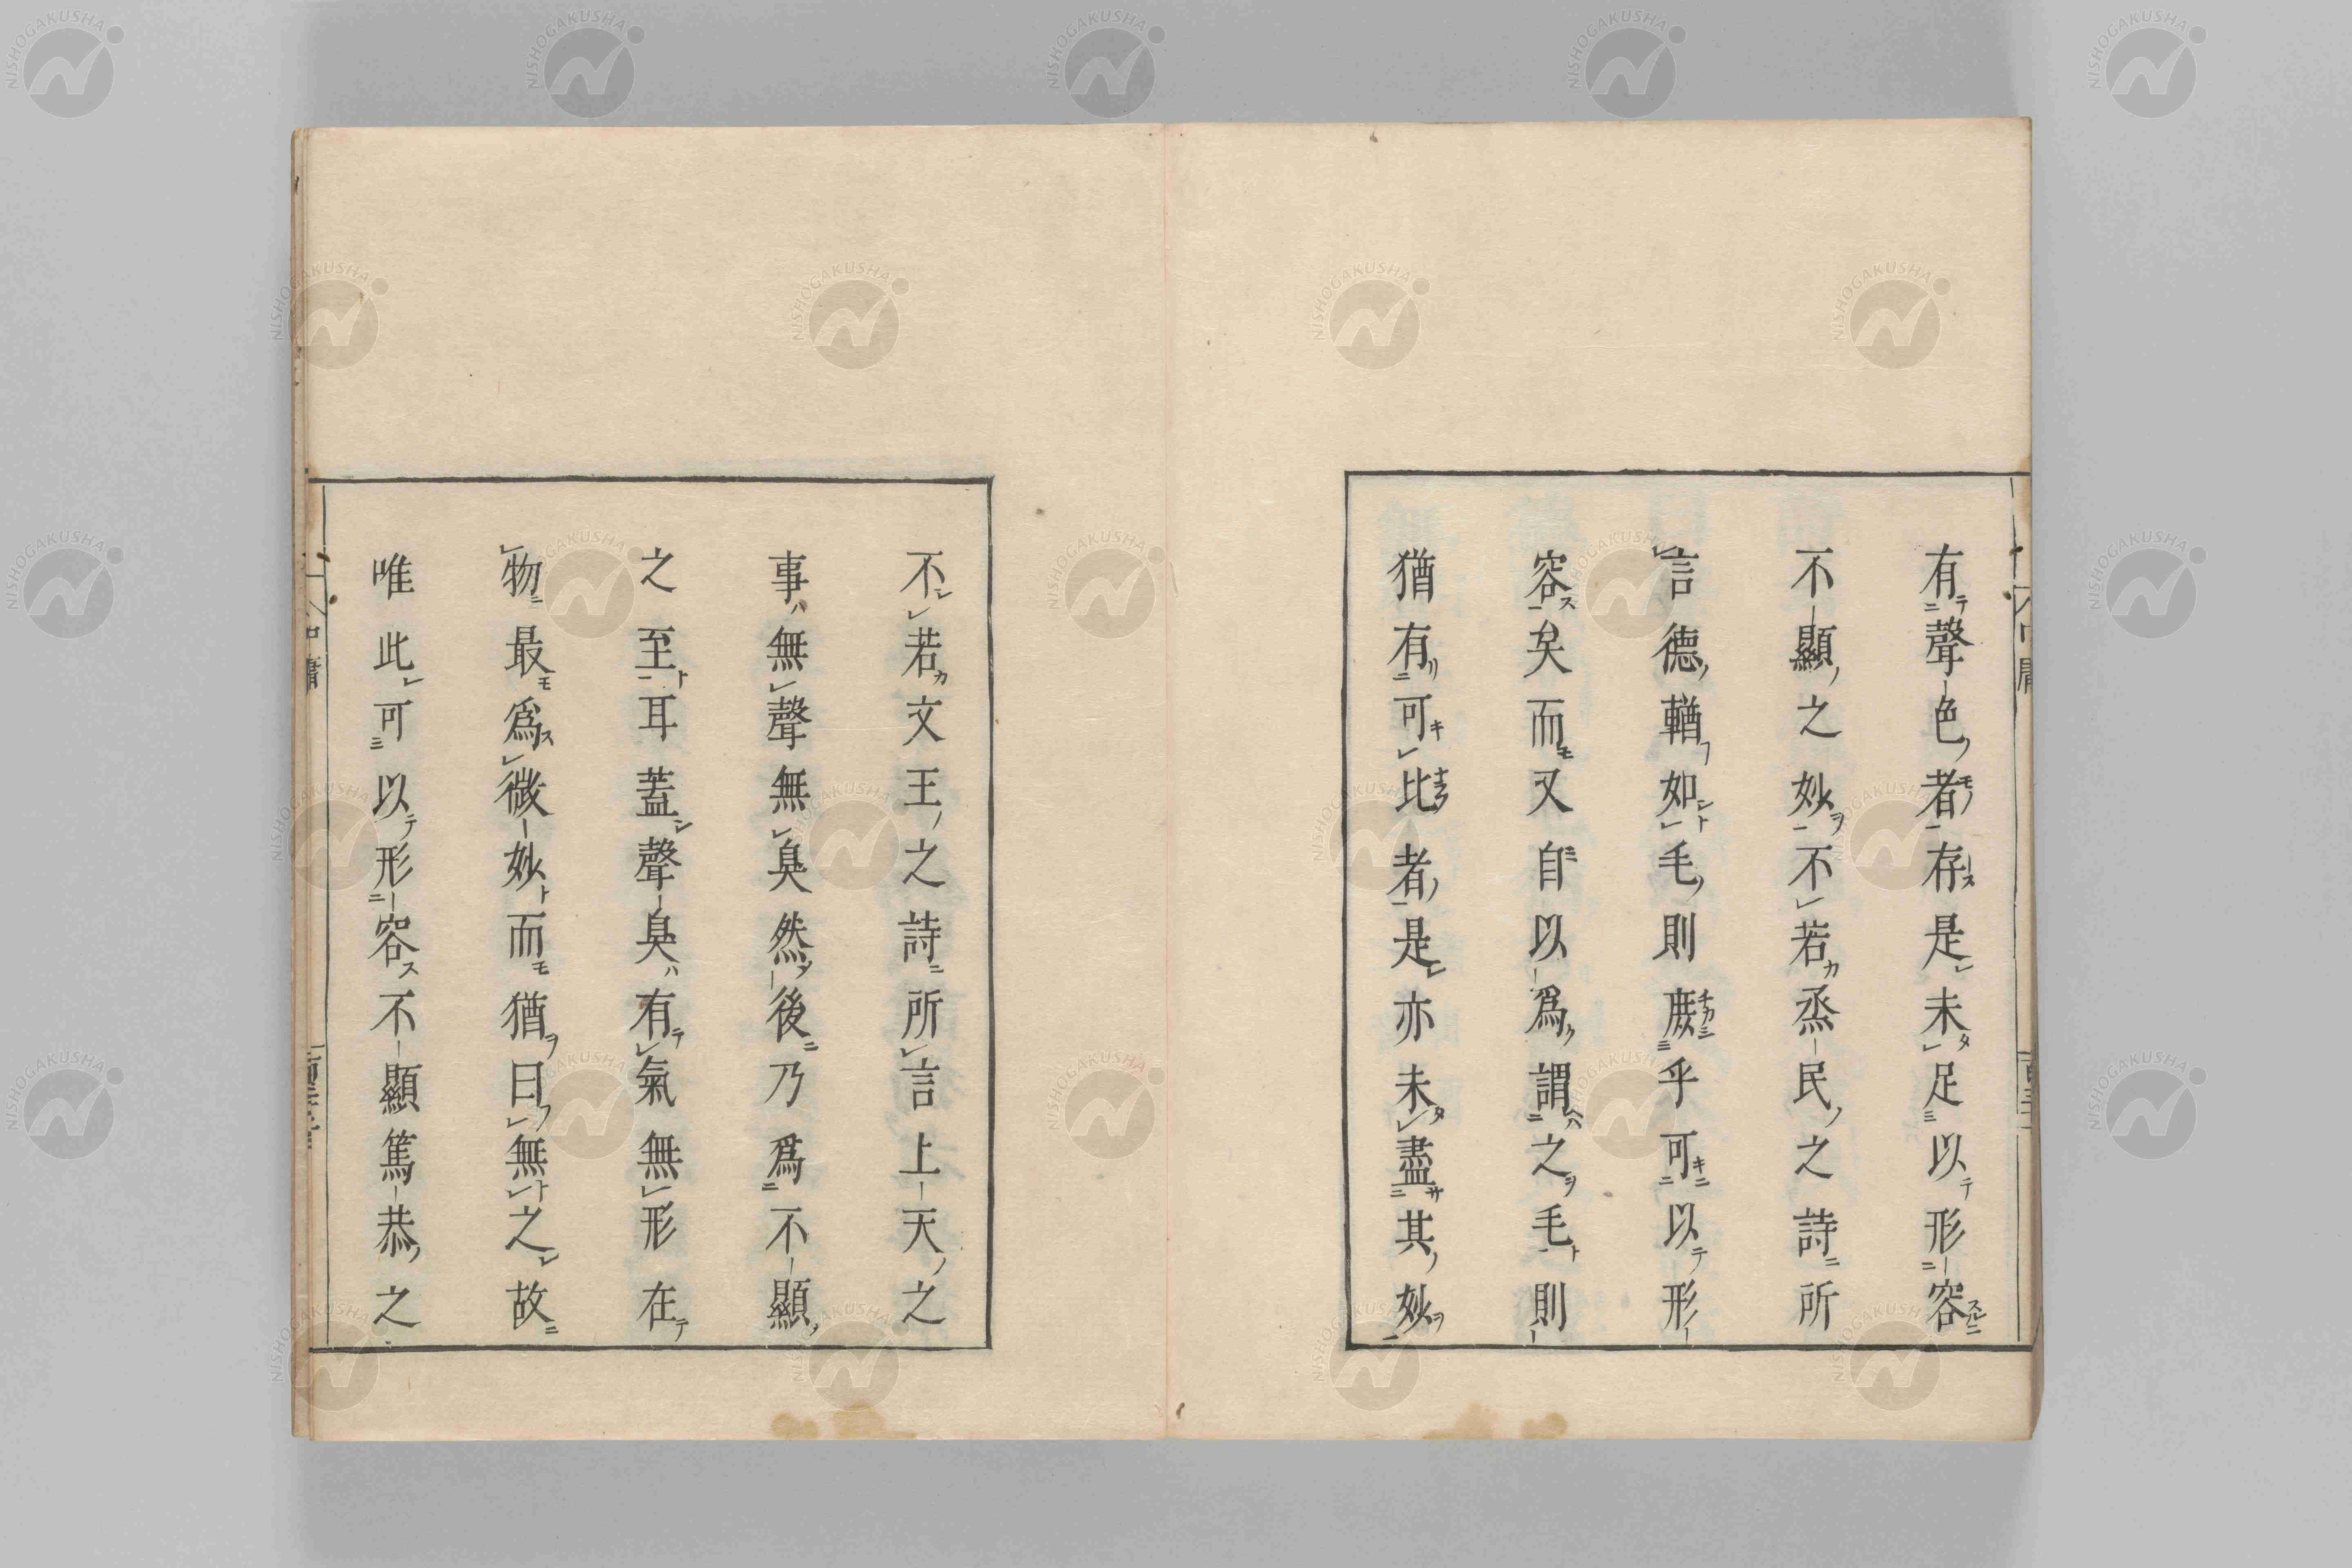 有聲色者存是未足以形容
不顯之妙不若烝民之詩所
言德輶如毛則庶乎可以形
容矣而又自以爲謂之毛則
猶有可比者是亦未盡其妙
不若文王之詩所言上天之
事無聲無臭然後乃爲不顯
之至耳蓋聲臭有氣無形在
物最爲微妙而猶曰無之故
唯此可以形容不顯篤恭之
中庸
NISHOGAKUSHA